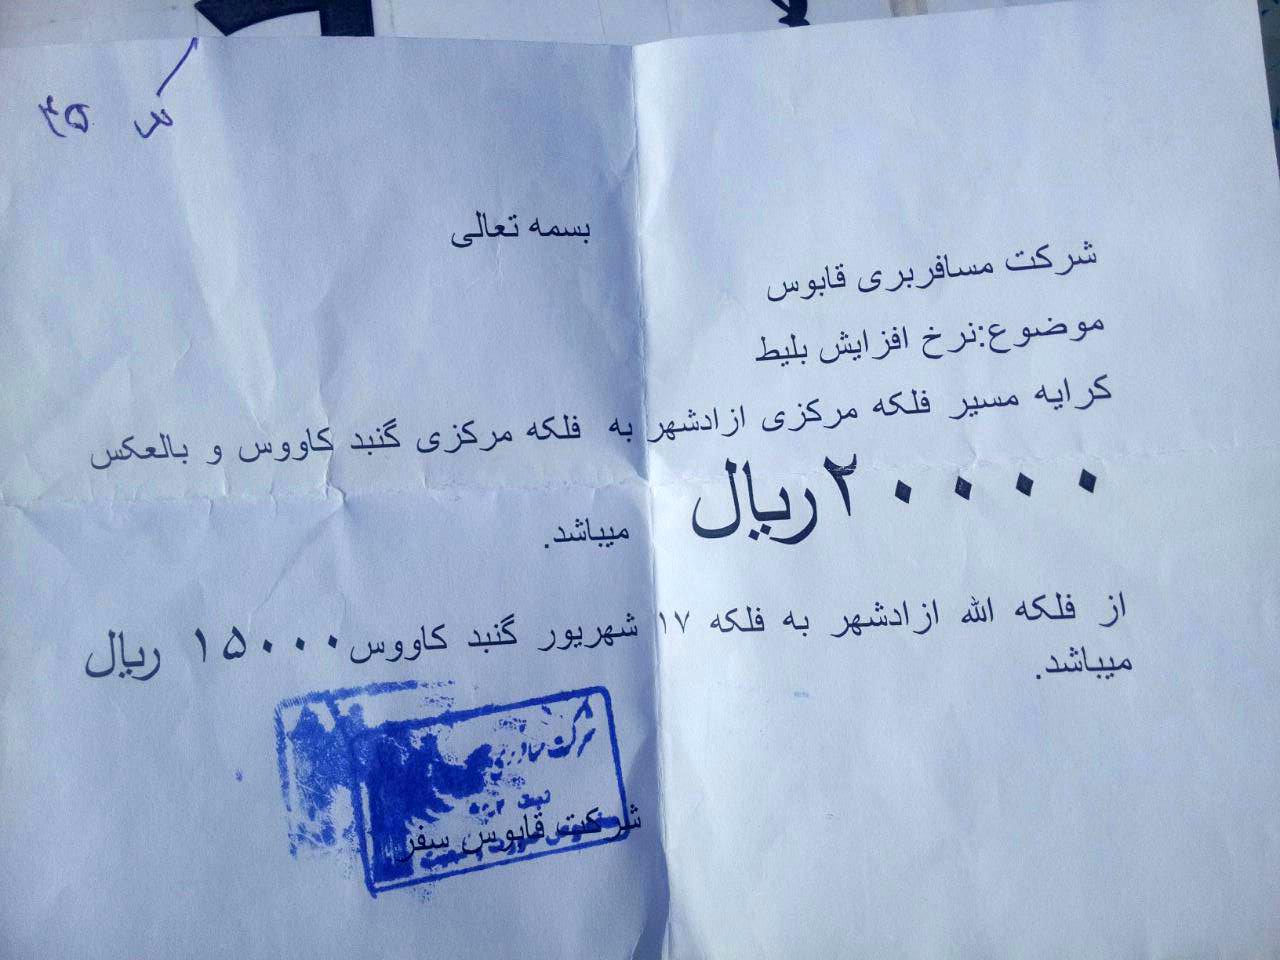 کد ۳۵
بسمه تعالی
شرکت مسافربری قابوس
موضوع:نرخ افزایش بلیط
کرایه مسیر فلکه مرکزی ازادشهر به فلکه مرکزی گنبد کاووس و بالعکس
۲۰۰۰۰ریال میباشد.
از فلکه الله ازادشهر به فلکه ۱۷ شهریور گنبد کاووس۱۵۰۰۰ ریال
میباشد.
شرکت مسافربری
ثبت
شرکت قابوس سفر